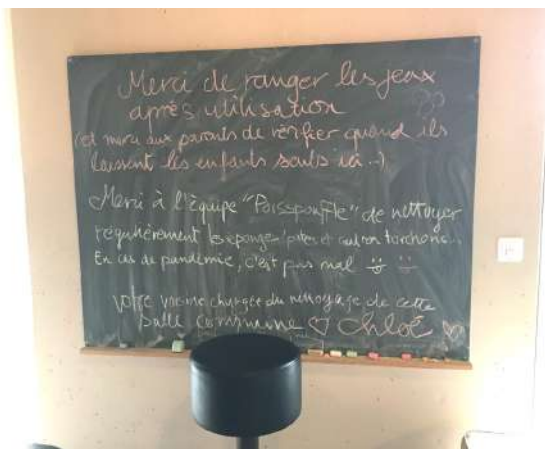 Merci de ranger les jeux
après utilisation
(et merci aux parents de vérifier quand ils
laissent les enfants seuls ici...)
Merci à l'équipe "Poisspoufle" de nettoyer
régulièrement les éponges/ et torchons.
En cas de pandémie, c'est pas mal
Votre voisine chargée du nettoyage de cette
salle commune ♡ Chloé ♡